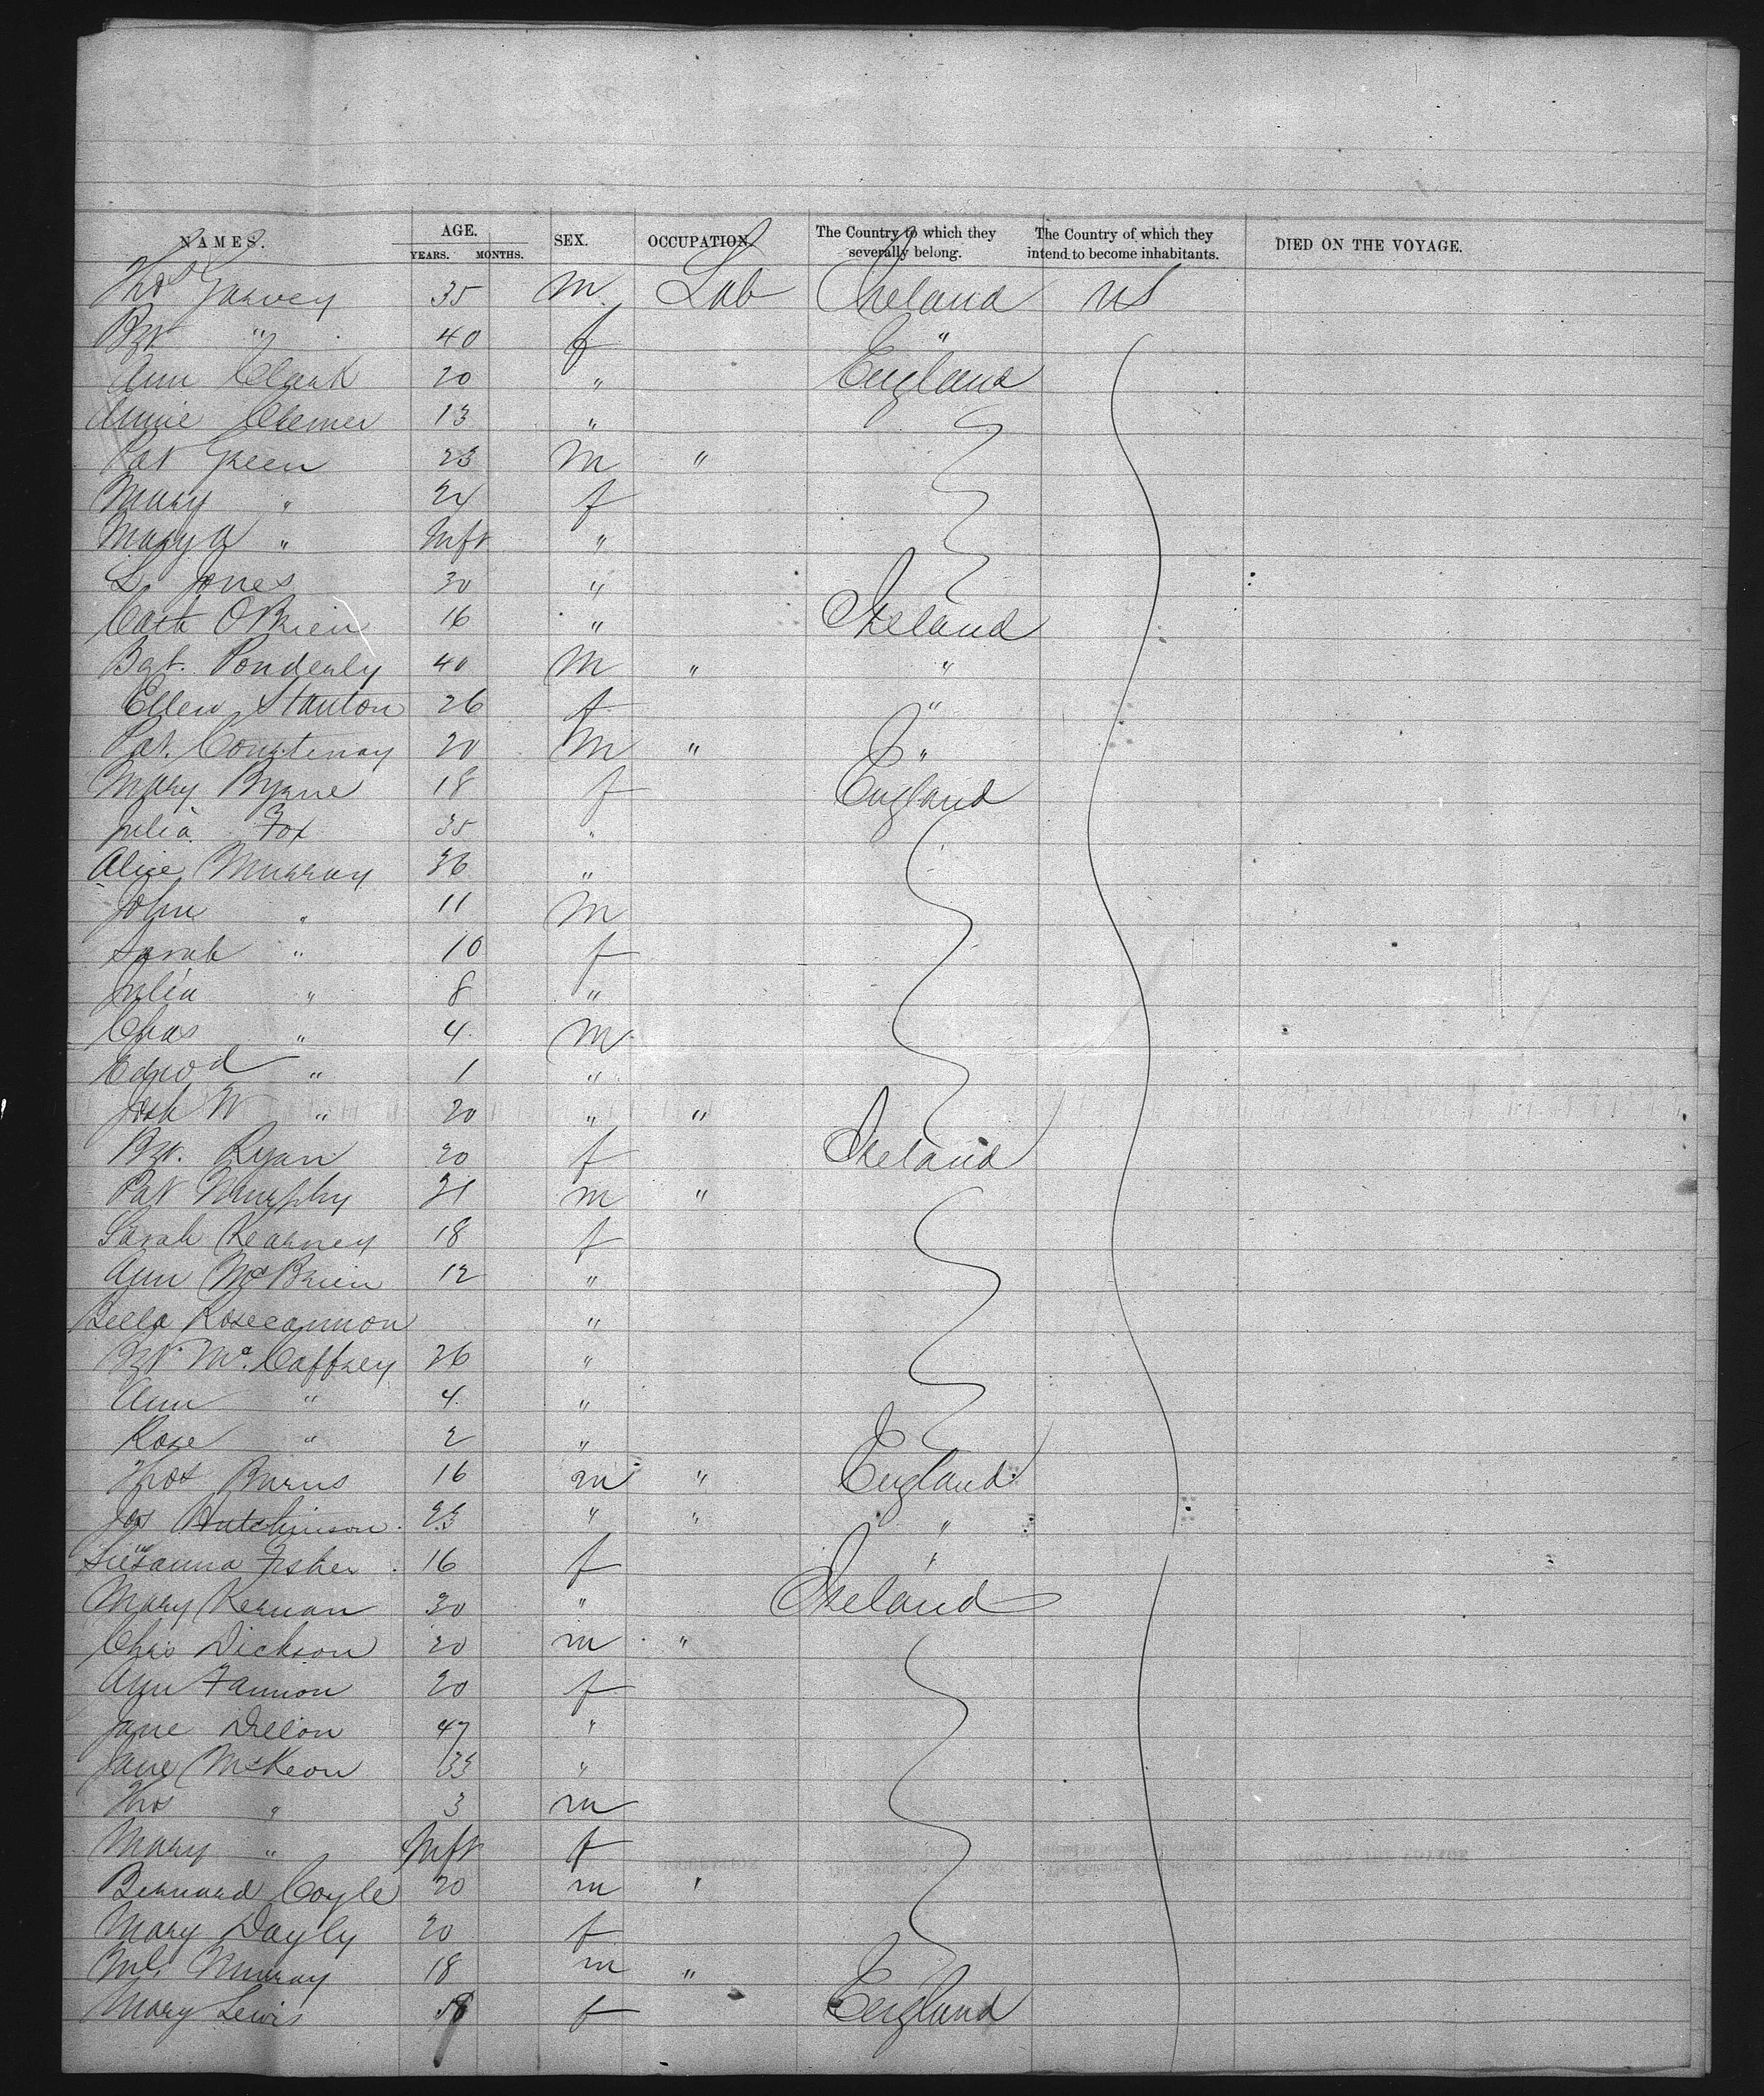 NAMES. AGE. YEARS. MONTHS. SEX. OCCUPATION. The Country to which they severally belong. The Country of which they intend to become inhabitants. DIED ON THE VOYAGE.
Thos Garvey 35 m Lab Ireland US
Bgt " 40 f "
Ann Clark 20 " England
Annie Clemer 13 "
Pat Green 23 m "
Mary " 24 f
Mary A " Inft "
L. Jones 30 "
Cath OBrien 16 " Ireland
Bgt. Ponderly 40 m " "
Ellen Stanton 26 f "
Pat. Courtenay 20 m " "
Mary Byrne 18 f England
Julia Fox 35 "
Alice Murray 36 "
John " 11 m
Sarah " 10 f
Julia " 8 "
Chas " 4 m
Edwd " 1 "
Josh W " 20 " "
Bgt. Ryan 20 f Ireland
Pat Murphy 21 m "
Sarah Kearney 18 f
Ann McBrien 12 "
Bella Rosecannon "
Bgt McCaffrey 26 "
Ann " 4 "
Rose " 2 "
Thos Burns 16 m " England
Jas Hutchinson 23 " " "
Susanna Fisher 16 f "
Mary Kernan 30 " Ireland
Chis Dickson 20 m "
Ann Fannon 20 f
Jane Dillon 47 "
Jane McKeon 33 "
Thos " 3 m
Mary " Inft f
Bernard Coyle 20 m "
Mary Dayly 20 f
Ml. Murray 18 m "
Mary Lewis f England